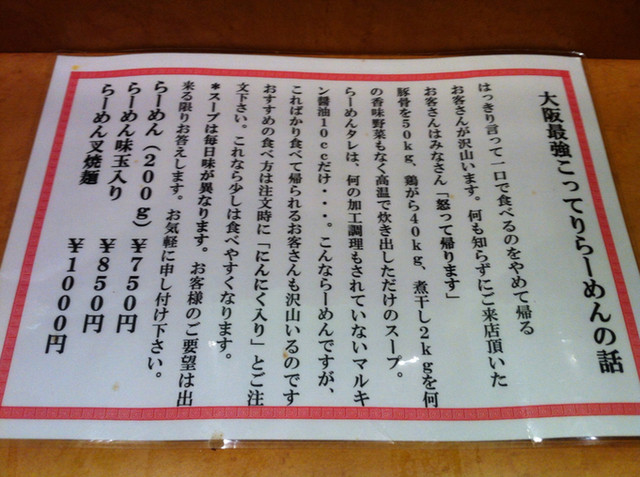 大阪最強こってりらーめんの話
はっきり言って一口で食べるのをやめて帰る
お客さんが沢山います。何も知らずにご来店頂いた
お客さんはみなさん「怒って帰ります」
豚骨を50kg、鶏がら40kg、煮干し2kgを何
の香味野菜もなく高温で炊き出しただけのスープ。
らーめんタレは、何の加工調理もされていないマルキ
ン醤油10ccだけ・・・。こんならーめんですが、
こればかり食べて帰られるお客さんも沢山いるのです
おすすめの食べ方は注文時に「にんにく入り」とご注
文下さい。これなら少しは食べやすくなります。
*スープは毎日味が異なります。お客様のご要望は出
来る限りお答えします。お気軽に申し付け下さい。
らーめん(200g)¥750円
らーめん味玉入り ¥850円
らーめん叉焼麺 ¥1000円